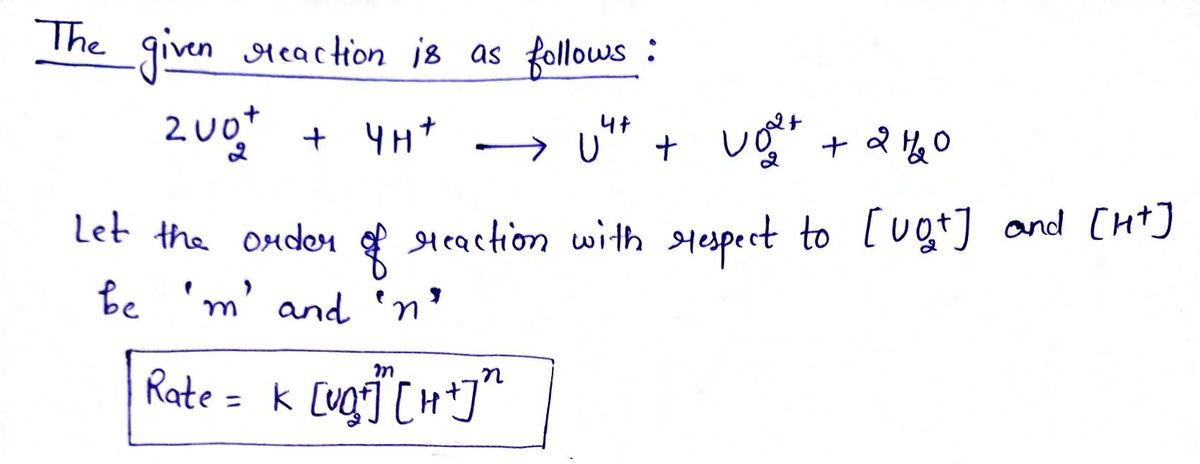 The given reaction is as follows :
2UO₂⁺ + 4H⁺ ⟶ U⁴⁺ + UO₂²⁺ + 2H₂O
Let the order of reaction with respect to [UO₂⁺] and [H⁺]
be 'm' and 'n'
Rate = K [UO₂⁺]ᵐ [H⁺]ⁿ